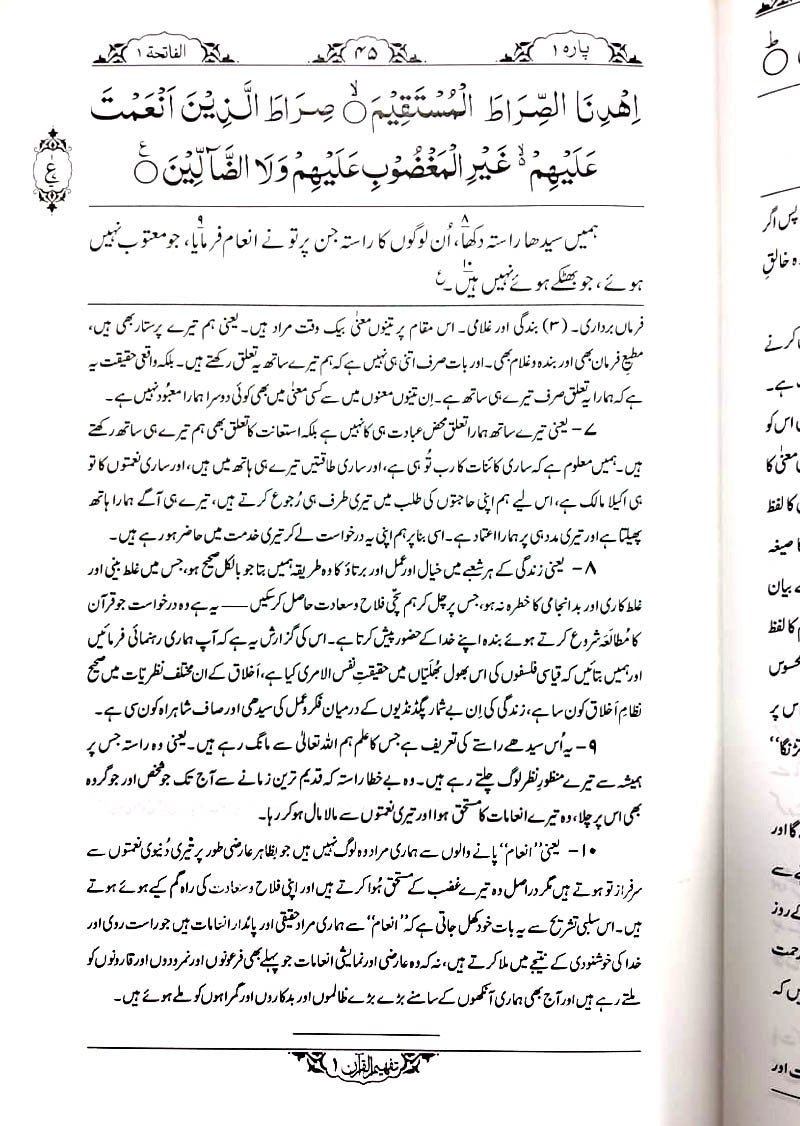 الفاتحۃ ۱
۴۵
پارہ ۱
اِهْدِنَا الصِّرَاطَ الْمُسْتَقِيْمَ ۙ صِرَاطَ الَّذِيْنَ اَنْعَمْتَ
عَلَيْهِمْ ۙ۬ غَيْرِ الْمَغْضُوْبِ عَلَيْهِمْ وَلَا الضَّآلِّيْنَ ۠
ع
ہمیں سیدھا راستہ دکھا۸، اُن لوگوں کا راستہ جن پر تو نے انعام فرمایا۹، جو معتوب نہیں
ہوئے، جو بھٹکے ہوئے نہیں ہیں۱۰۔ ع
فرماں برداری۔ (۳) بندگی اور غلامی۔ اس مقام پر تینوں معنیٰ بیک وقت مراد ہیں۔ یعنی ہم تیرے پرستار بھی ہیں،
مطیعِ فرمان بھی اور بندہ و غلام بھی۔ اور بات صرف اتنی ہی نہیں ہے کہ ہم تیرے ساتھ یہ تعلق رکھتے ہیں۔ بلکہ واقعی حقیقت یہ
ہے کہ ہمارا یہ تعلق صرف تیرے ہی ساتھ ہے۔ اِن تینوں معنوں میں سے کسی معنیٰ میں بھی کوئی دوسرا ہمارا معبُود نہیں ہے۔
۷- یعنی تیرے ساتھ ہمارا تعلق محض عبادت ہی کا نہیں ہے بلکہ استعانت کا تعلق بھی ہم تیرے ہی ساتھ رکھتے
ہیں۔ ہمیں معلوم ہے کہ ساری کائنات کا رب تُو ہی ہے، اور ساری طاقتیں تیرے ہی ہاتھ میں ہیں، اور ساری نعمتوں کا تو
ہی اکیلا مالک ہے، اس لیے ہم اپنی حاجتوں کی طلب میں تیری طرف ہی رُجوع کرتے ہیں، تیرے ہی آگے ہمارا ہاتھ
پھیلتا ہے اور تیری مدد ہی پر ہمارا اعتماد ہے۔ اسی بنا پر ہم اپنی یہ درخواست لے کر تیری خدمت میں حاضر ہو رہے ہیں۔
۸- یعنی زندگی کے ہر شعبے میں خیال اور عمل اور برتاؤ کا وہ طریقہ ہمیں بتا جو بالکل صحیح ہو، جس میں غلط بینی اور
غلط کاری اور بد انجامی کا خطرہ نہ ہو، جس پر چل کر ہم سچّی فلاح و سعادت حاصل کر سکیں —— یہ ہے وہ درخواست جو قرآن
کا مُطالَعہ شروع کرتے ہوئے بندہ اپنے خدا کے حضور پیش کرتا ہے۔ اس کی گزارش یہ ہے کہ آپ ہماری رہنمائی فرمائیں
اور ہمیں بتائیں کہ قیاسی فلسفوں کی اس بھول بھُلَیّاں میں حقیقتِ نفس الامری کیا ہے، اَخلاق کے ان مختلف نظریّات میں صحیح
نظامِ اَخلاق کون سا ہے، زندگی کی اِن بے شمار پگڈنڈیوں کے درمیان فکر و عمل کی سیدھی اور صاف شاہراہ کون سی ہے۔
۹- یہ اُس سیدھے راستے کی تعریف ہے جس کا علم ہم اللہ تعالیٰ سے مانگ رہے ہیں۔ یعنی وہ راستہ جس پر
ہمیشہ سے تیرے منظورِ نظر لوگ چلتے رہے ہیں۔ وہ بے خطا راستہ کہ قدیم ترین زمانے سے آج تک جو شخص اور جو گروہ
بھی اس پر چلا، وہ تیرے انعامات کا مستحق ہوا اور تیری نعمتوں سے مالا مال ہو کر رہا۔
۱۰- یعنی ”انعام“ پانے والوں سے ہماری مراد وہ لوگ نہیں ہیں جو بظاہر عارضی طور پر تیری دُنیوی نعمتوں سے
سرفراز تو ہوتے ہیں مگر دراصل وہ تیرے غضب کے مستحق ہُوا کرتے ہیں اور اپنی فلاح و سعادت کی راہ گم کیے ہوئے ہوتے
ہیں۔ اس سلبی تشریح سے یہ بات خود کھل جاتی ہے کہ ”انعام“ سے ہماری مراد حقیقی اور پائدار انعامات ہیں جو راست روی اور
خدا کی خوشنودی کے نتیجے میں ملا کرتے ہیں، نہ کہ وہ عارضی اور نمایشی انعامات جو پہلے بھی فرعونوں اور نمرودوں اور قارونوں کو
ملتے رہے ہیں اور آج بھی ہماری آنکھوں کے سامنے بڑے بڑے ظالموں اور بدکاروں اور گمراہوں کو ملے ہوئے ہیں۔
تفہیم القرآن ۱
پس اگر
ہ خالقِ
کرنے
ت ہے۔
اس کو
معنیٰ کا
کا لفظ
صیغہ
بیان
کا لفظ
محسوس
س پر
گا اور
کے روز
رحمت
یں کہ
ت اور